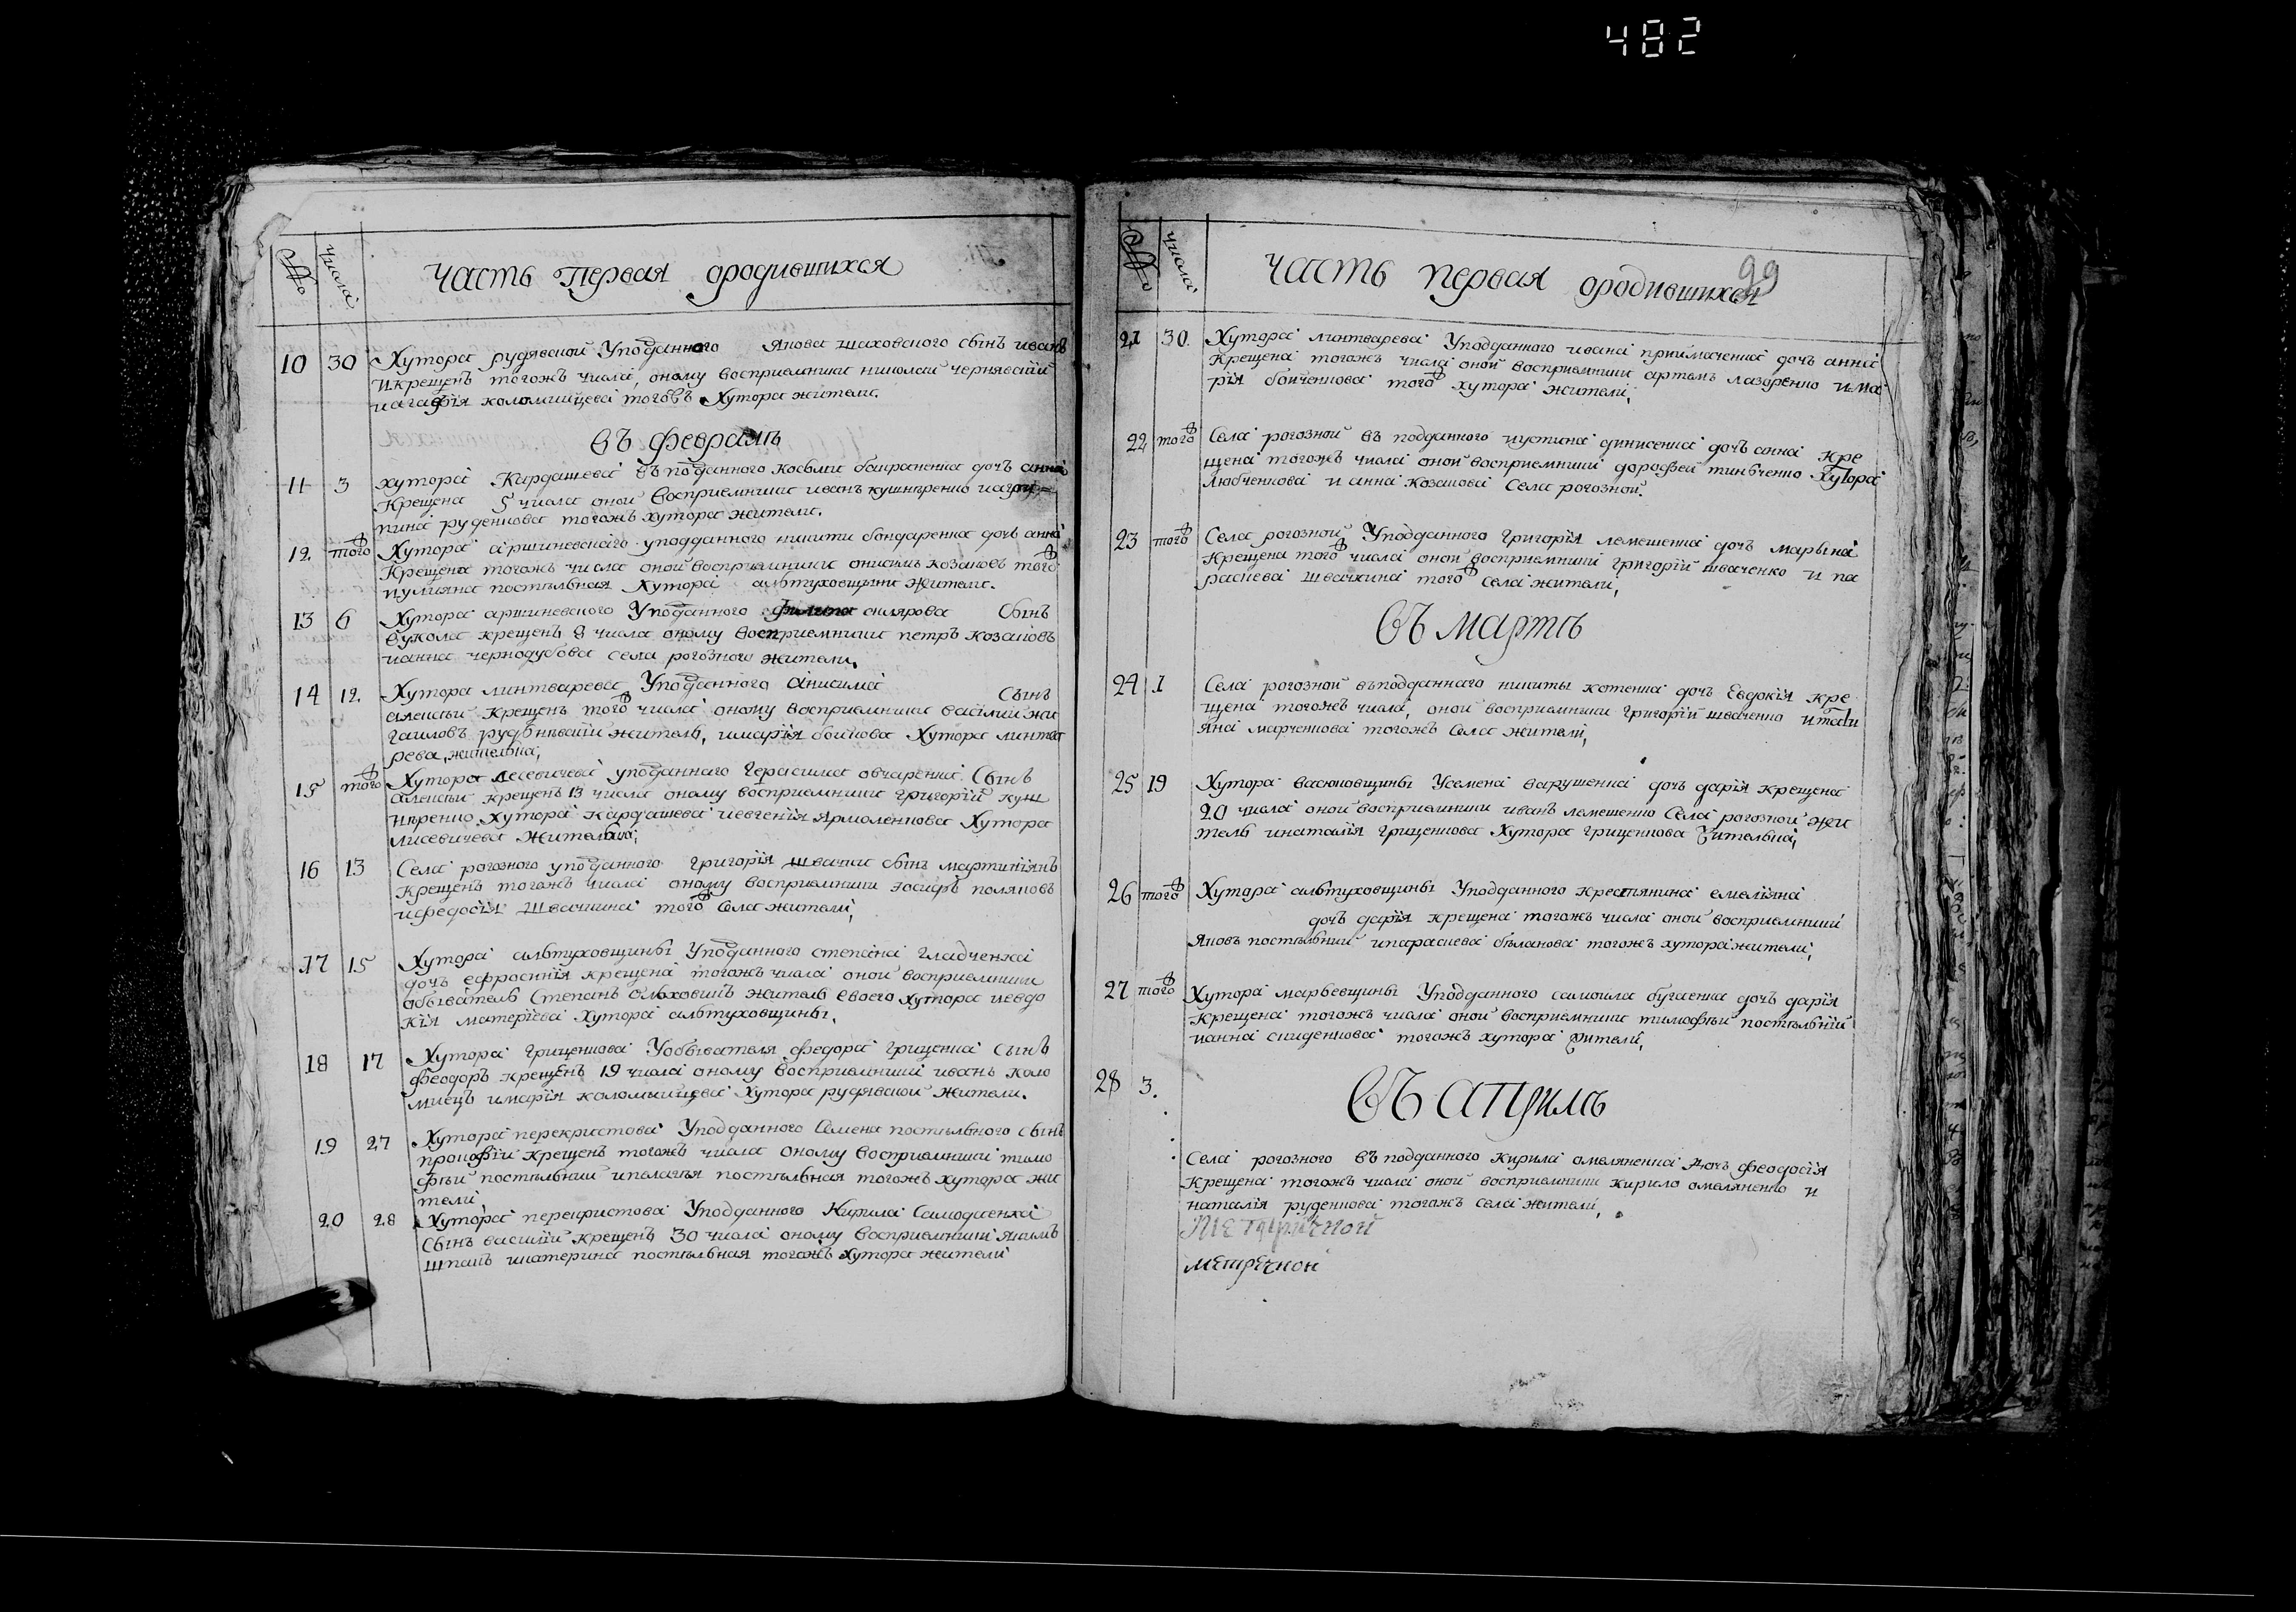 482
№ числа Часть Первая ородившихся
10 30 Хутора рудявской Уподданного Якова шаховского сынъ иванъ
Икрещенъ тогожъ числа, оному восприемники николай чернявский
иагафія коломийцева тогожъ Хутора жители.
въ февралѣ
11 3 хутора Кардашева въ подданного косьми баираченка дочь анна
Крещена 5 числа оной восприемники иванъ кушнѣренко иагри=
пина руденкова тогожъ хутора жители.
12. того ж Хутора аршиневскаго уподданного никити бондаренка дочь анна
Крещена тогожъ числа оной восприемники онисимъ козаковъ того ж
иулияна постѣльная Хутора алътуховщини жители.
13 6 Хутора аршиневского Уподданного склярова Сынъ
вукола крещенъ 8 числа оному восприемники петръ козаковъ
ианна чернодубова села рогозного жители.
14 12. Хутора линтварева Уподданного Анисима Сынъ
алексѣи крещенъ того ж числа оному восприемники василий ми
гаиловъ житель, имарія бойкова Хутора линтва
рева, жителька,
15 того ж Хутора лесевичева уподданного Герасима овчаренка Сынъ
Алексѣи крещенъ 13 числа оному восприемники григорій куш
нѣренко Хутора Кардашева иевгенія Ярмоленкова Хутора
лисевичева жителька;
16 13 Села рогозного уподданного григорія швачки сынъ мартиніянъ
крещенъ тогожъ числа оному восприемники иосифъ поляковъ
ифедосія Швачкина того ж села жители,
17 15 Хутора алътуховщины Уподданного степана Гладченка
дочь ефросинія крещена тогожъ числа оной восприемники
обыватель Степанъ Ольховий житель своего хутора иевдо
кія матеріева Хутора алътуховщины.
18 17 Хутора грищенкова Уобывателя федора Грищенка Сынъ
феодоръ крещенъ 19 числа оному восприемники иванъ коло
миецъ имарія коломийцева Хутора рудявской жители.
19 27 Хутора перекристова Уподданного Семена постѣльного сынъ
прокофій крещенъ тогожъ числа оному восприемники тимо
фѣй постѣльний ипелагѣя постѣльная тогожъ хутора жи
тели
20 28 Хутора перекристова Уподданного Кирила Самодиенка
Сынъ василій крещенъ 30 числа оному восприемники якимъ
шпакъ икатерина постѣльная тогожъ хутора жители
99
№ числа Часть первая ородившихся
21 30 Хутора линтварева Уподданного ивана приймаченка дочь анна
Крещена тогожъ числа оной восприемники артемъ лазаренко има
рія бойченкова того ж хутора жители,
22 того ж Села рогозной въ подданного иустина динисенка дочь анна кре
щена тогожъ числа оной восприемники дорофей тимченко Хутора
любченкова и анна козакова Села рогозной.
23 того ж Села рогозной Уподданного григорія лемешенка дочь марьина
Крещена того ж числа оной восприемники григорій шваченко и па
раскева швачкина того ж села жители,
въ мартѣ
24 1 Села рогозной въподданнаго никиты котенка дочь Евдокія кре
щена тогожъ числа, оной восприемники григорій шваченко итати
яна марченкова тогожъ села жители,
25 19 Хутора васюковщины Усемена вакрушенка дочь дарія крещена
20 числа оной восприемники иванъ лемешенко Села рогозной жи
тель инаталія грищенкова Хутора грищенкова жителька,
26 того ж Хутора алътуховщины Уподданного крестянина емеліяна
дочь дарія крещена тогожъ числа оной восприемники
Яковъ постѣльний ипараскева бѣланова тогожъ хутора жители,
27 того ж Хутора марьевщины Уподданного самоила бугаенка дочь дарія
крещена тогожъ числа оной восприемники тимофѣй постѣльній
ианна скиденкова тогожъ хутора жители,
28 3. въ априлѣ
Села рогозного въ подданного кирила омеляненка дочь феодосія
Крещена тогожъ числа оной восприемники кирило омеляненко и
наталія руденкова тогожъ села жители,
метричной
метричной